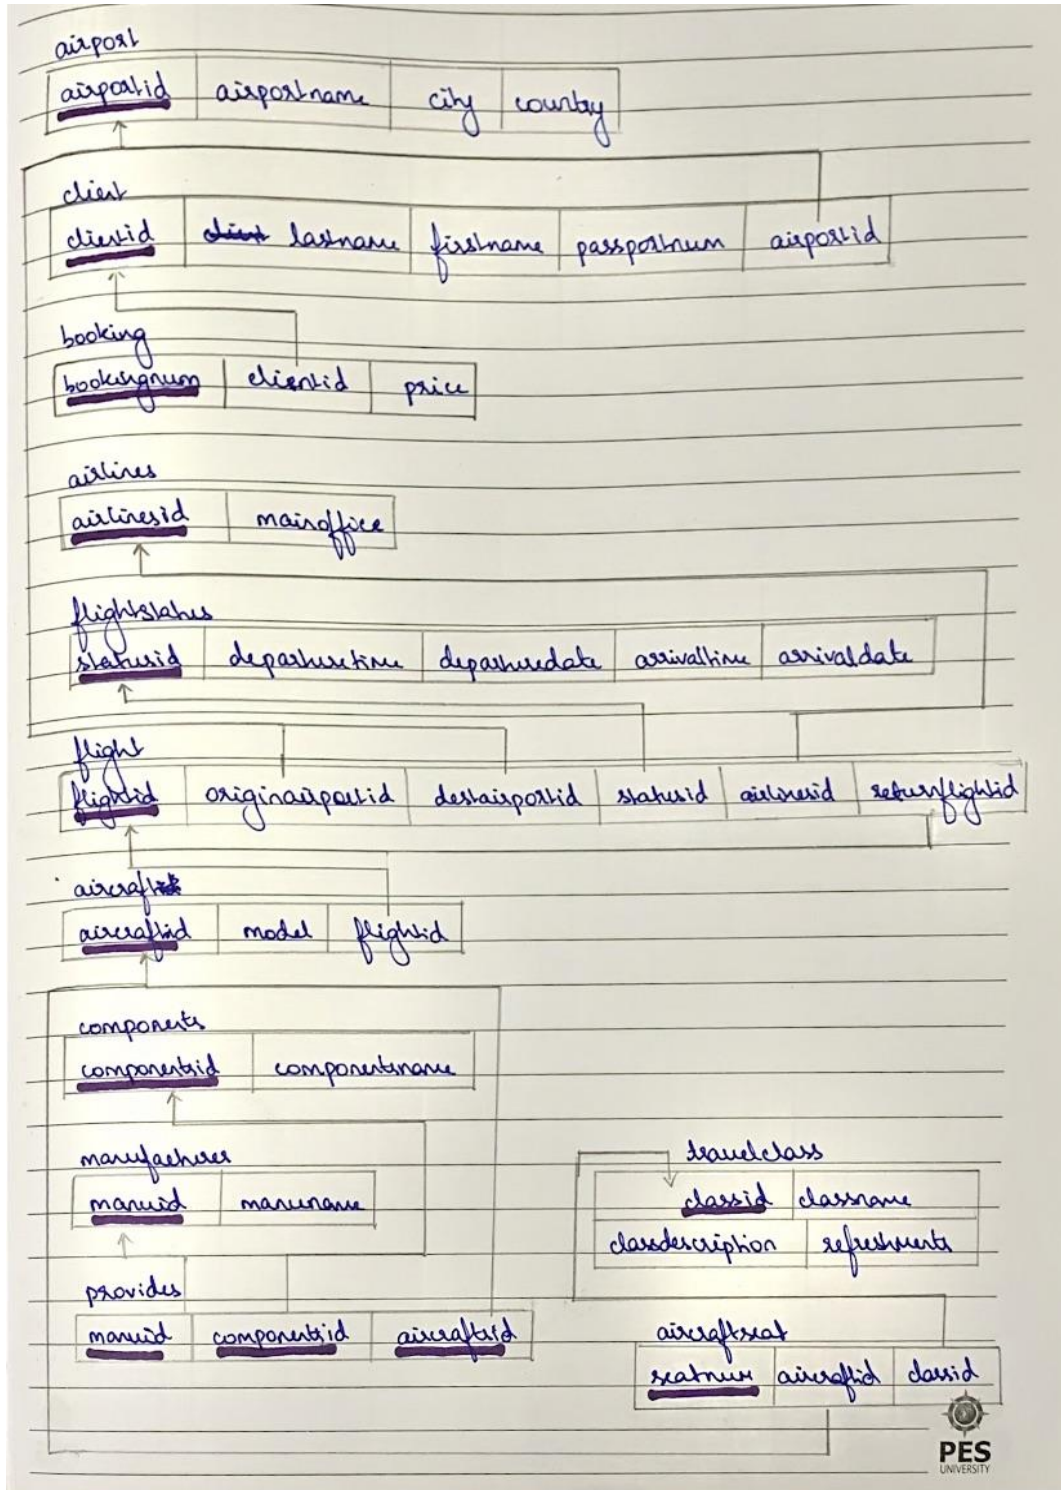 airport
airportid airportname city country
client
clientid client lastname firstname passportnum airportid
booking
bookingnum clientid price
airlines
airlinesid mainoffice
flightstatus
statusid departuretime departuredate arrivaltime arrivaldate
flight
flightid originairportid destairportid statusid airlinesid returnflightid
aircraft
aircraftid model flightid
components
componentsid componentsname
manufacturer
manuid manuname
travelclass
classid classname
classdescription refreshments
provides
manuid componentsid aircraftid
aircraftseat
seatnum aircraftid classid
PES
UNIVERSITY